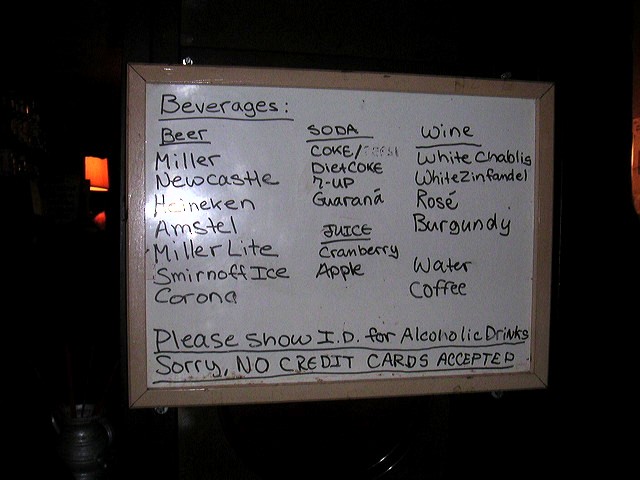 Beverages:
Beer
Miller
Newcastle
Heineken
Amstel
Miller Lite
Smirnoff Ice
Corona
SODA
COKE/
Diet COKE
7-UP
Guaraná
JUICE
Cranberry
Apple
Wine
White Chablis
White Zinfandel
Rosé
Burgundy
Water
Coffee
Please show I.D. for Alcoholic Drinks
Sorry, NO CREDIT CARDS ACCEPTED